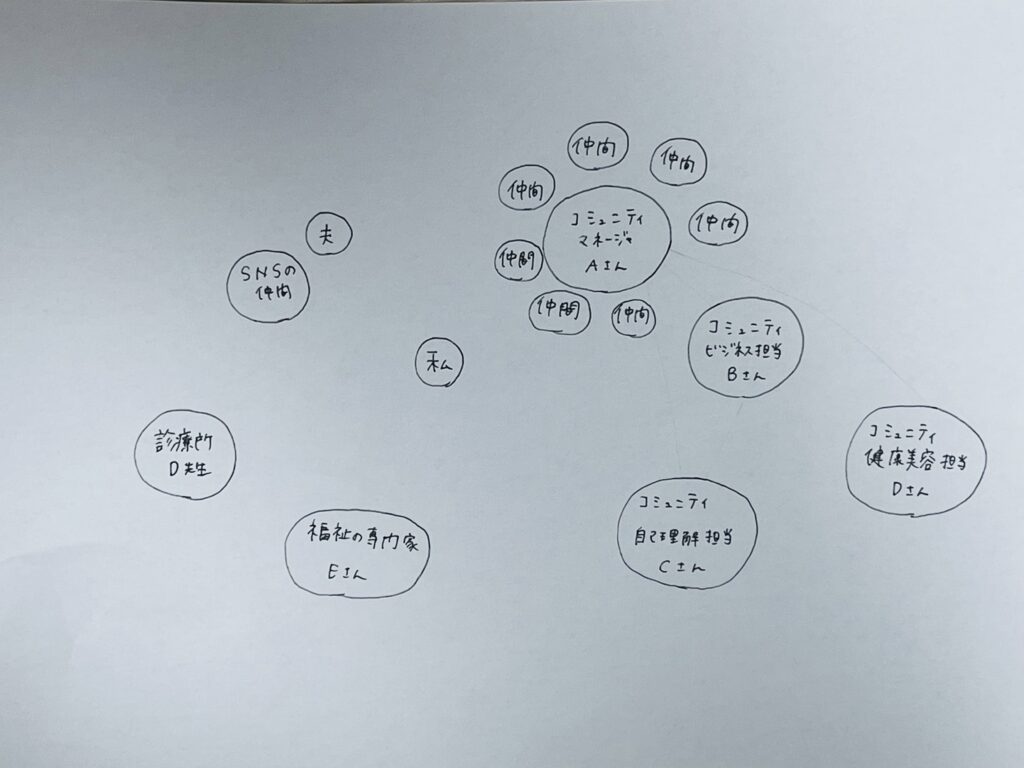 仲間
仲間
仲間
仲間
コミュニティ
マネージャ
Aさん
仲間
仲間
仲間
夫
SNSの
仲間
私
コミュニティ
ビジネス担当
Bさん
診療所
D先生
コミュニティ
健康美容担当
Dさん
福祉の専門家
Eさん
コミュニティ
自己理解担当
Cさん